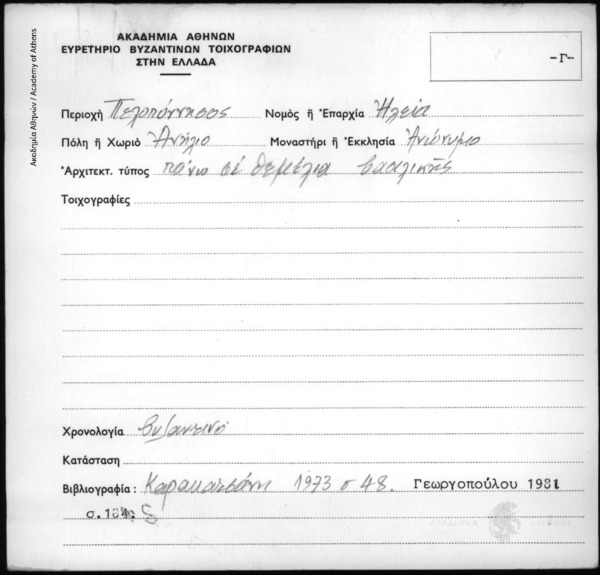 ΑΚΑΔΗΜΙΑ ΑΘΗΝΩΝ
ΕΥΡΕΤΗΡΙΟ ΒΥΖΑΝΤΙΝΩΝ ΤΟΙΧΟΓΡΑΦΙΩΝ
ΣΤΗΝ ΕΛΛΑΔΑ
-Γ-
Ακαδημία Αθηνών / Academy of Athens
Περιοχή Πελοπόννησος Νομὸς ἢ Ἐπαρχία Ἠλεία
Πόλη ἢ Χωριὸ Ἀνήλιο Μοναστήρι ἢ Ἐκκλησία Ἀνώνυμο
Ἀρχιτεκτ. τύπος πάνω σέ θεμέλια βασιλικῆς
Τοιχογραφίες
Χρονολογία βυζαντινή
Κατάσταση
Βιβλιογραφία : Καρακατσάνη 1973 σ 48. Γεωργοπούλου 1981
σ.